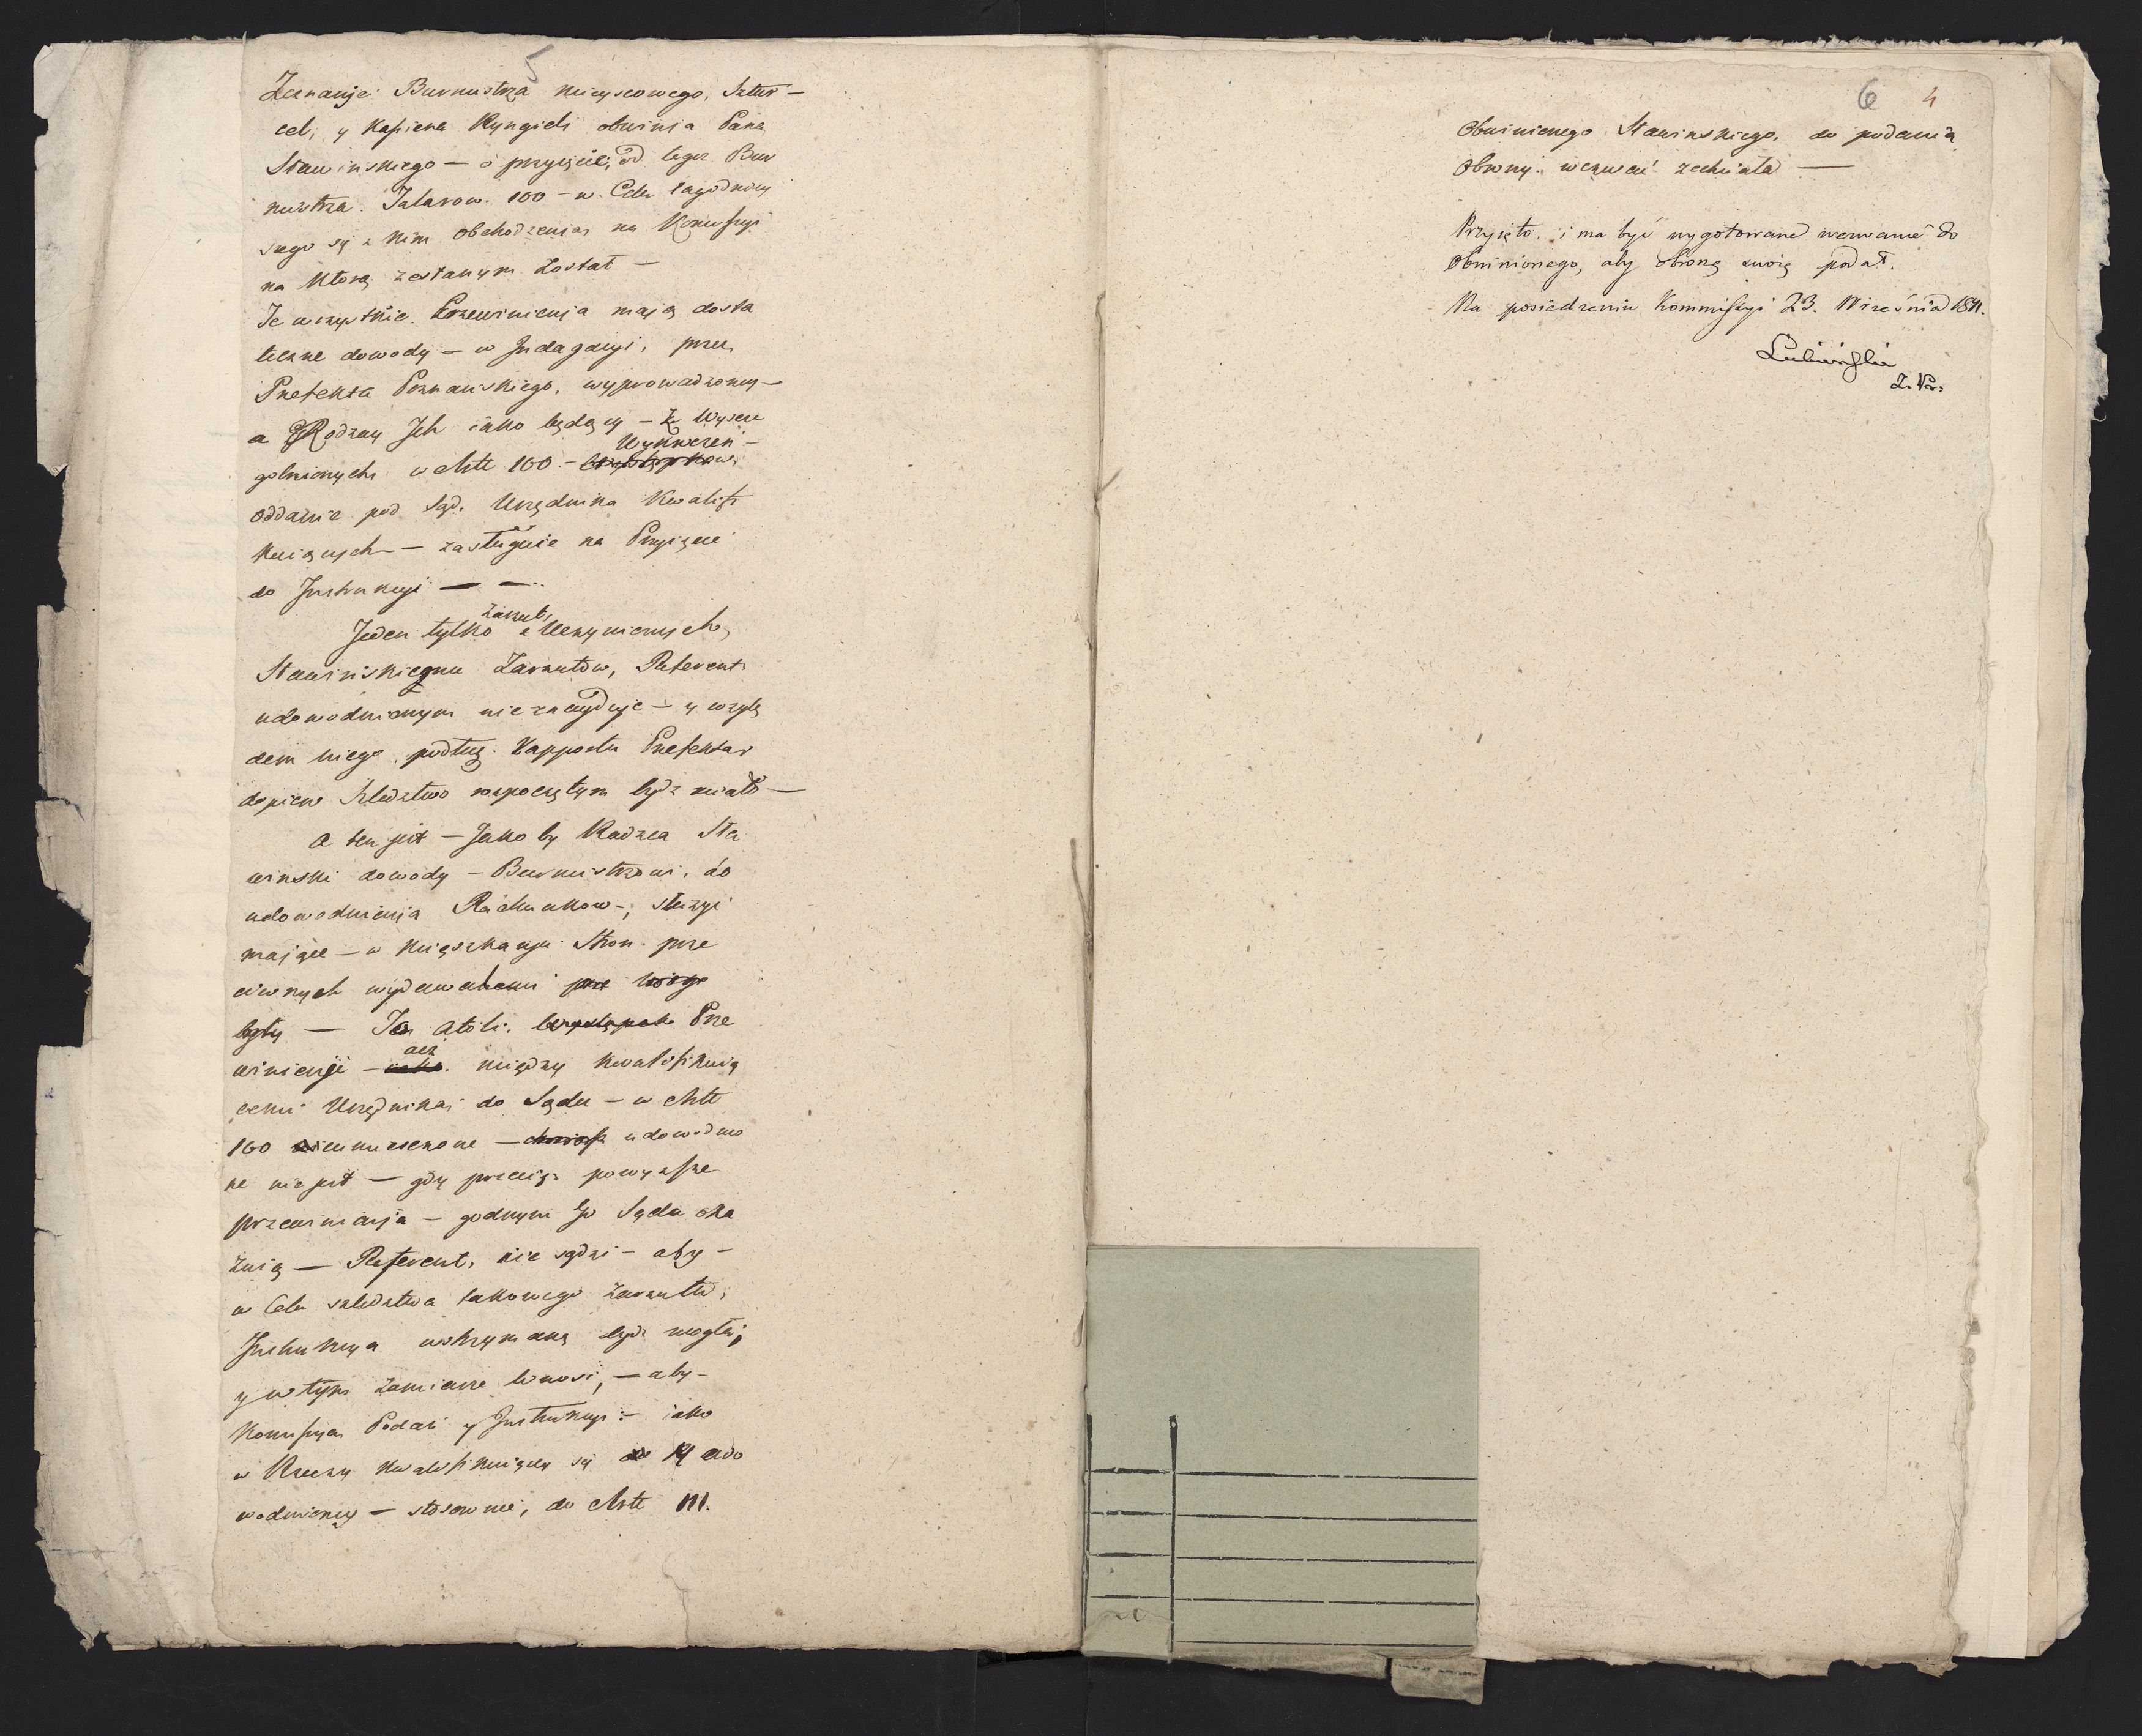 5
Zeznanie Burmistrza mieyscowego, Sztur-
cel, y Kassiera Ryngieli obwinia Pana
Stawinskiego — o przyięcie, od tegoż Bur
mistrza. Talarow. 100 — w Celu łagodniey
szego się z nim obchodzenia, na Komissyi
na którą zesłanym został —
Te wszystkie Przewinienia maią dosta
teczne dowody — w Indagacyi, przez
Prefekta Poznanskiego, wyprowadzoney —
a Rodzay Ich iako będący — z Wyszcze
Wykroczeń —
golnionych w Arte 160. —
oddanie pod Sąd. Urzędnika Kwalifi
kuiących — zasługuie na Przyięcie
do Instrukcyi — —
zarzut
Jeden tylko z Uczynionych,
Stawinskiemu Zarzutow, Referent
udowodnionym nieznayduje — y wzglę
dem niego, podług. Rapportu Prefekta
dopiero Sledztwo rozpoczętym bydź miało —
a ten jest — Jako by Radzca Sta
winski dowody — Burmistrzowi, do
udowodnienia Rachunkow —, służyć
maiące — w mięszkaniu Stron prze
ciwnych wydawanemi
były — To atoli. Prze
acz
winienie — między kwalifikuią
cemi Urzędnika do Sądu — w Arte
160 umieszczone — udowodnio
ne nie jest — gdy przecię powyższe
przewinienia — godnym Go Sądu oka
zuią — Referent, nie sądzi — aby —
w Celu szledztwa takowego zarzutu,
Instrukcya wstrzymaną bydź mogła;
y w tym zamiarze wnosi, — aby —
Komissya Podań y Instrukcyi — iako
w Rzeczy kwalifikuiącey się udo
wodnioney — stosownie, do Arte 111.
6 4
Obwinionego Stawinskiego, do podania
Obrony. wezwać zechciała —
Przyięto. i ma być wygotowane wezwanie do
Obwinionego, aby obronę swoię podał.
Na posiedzeniu Kommissyi 23. Września 1811.